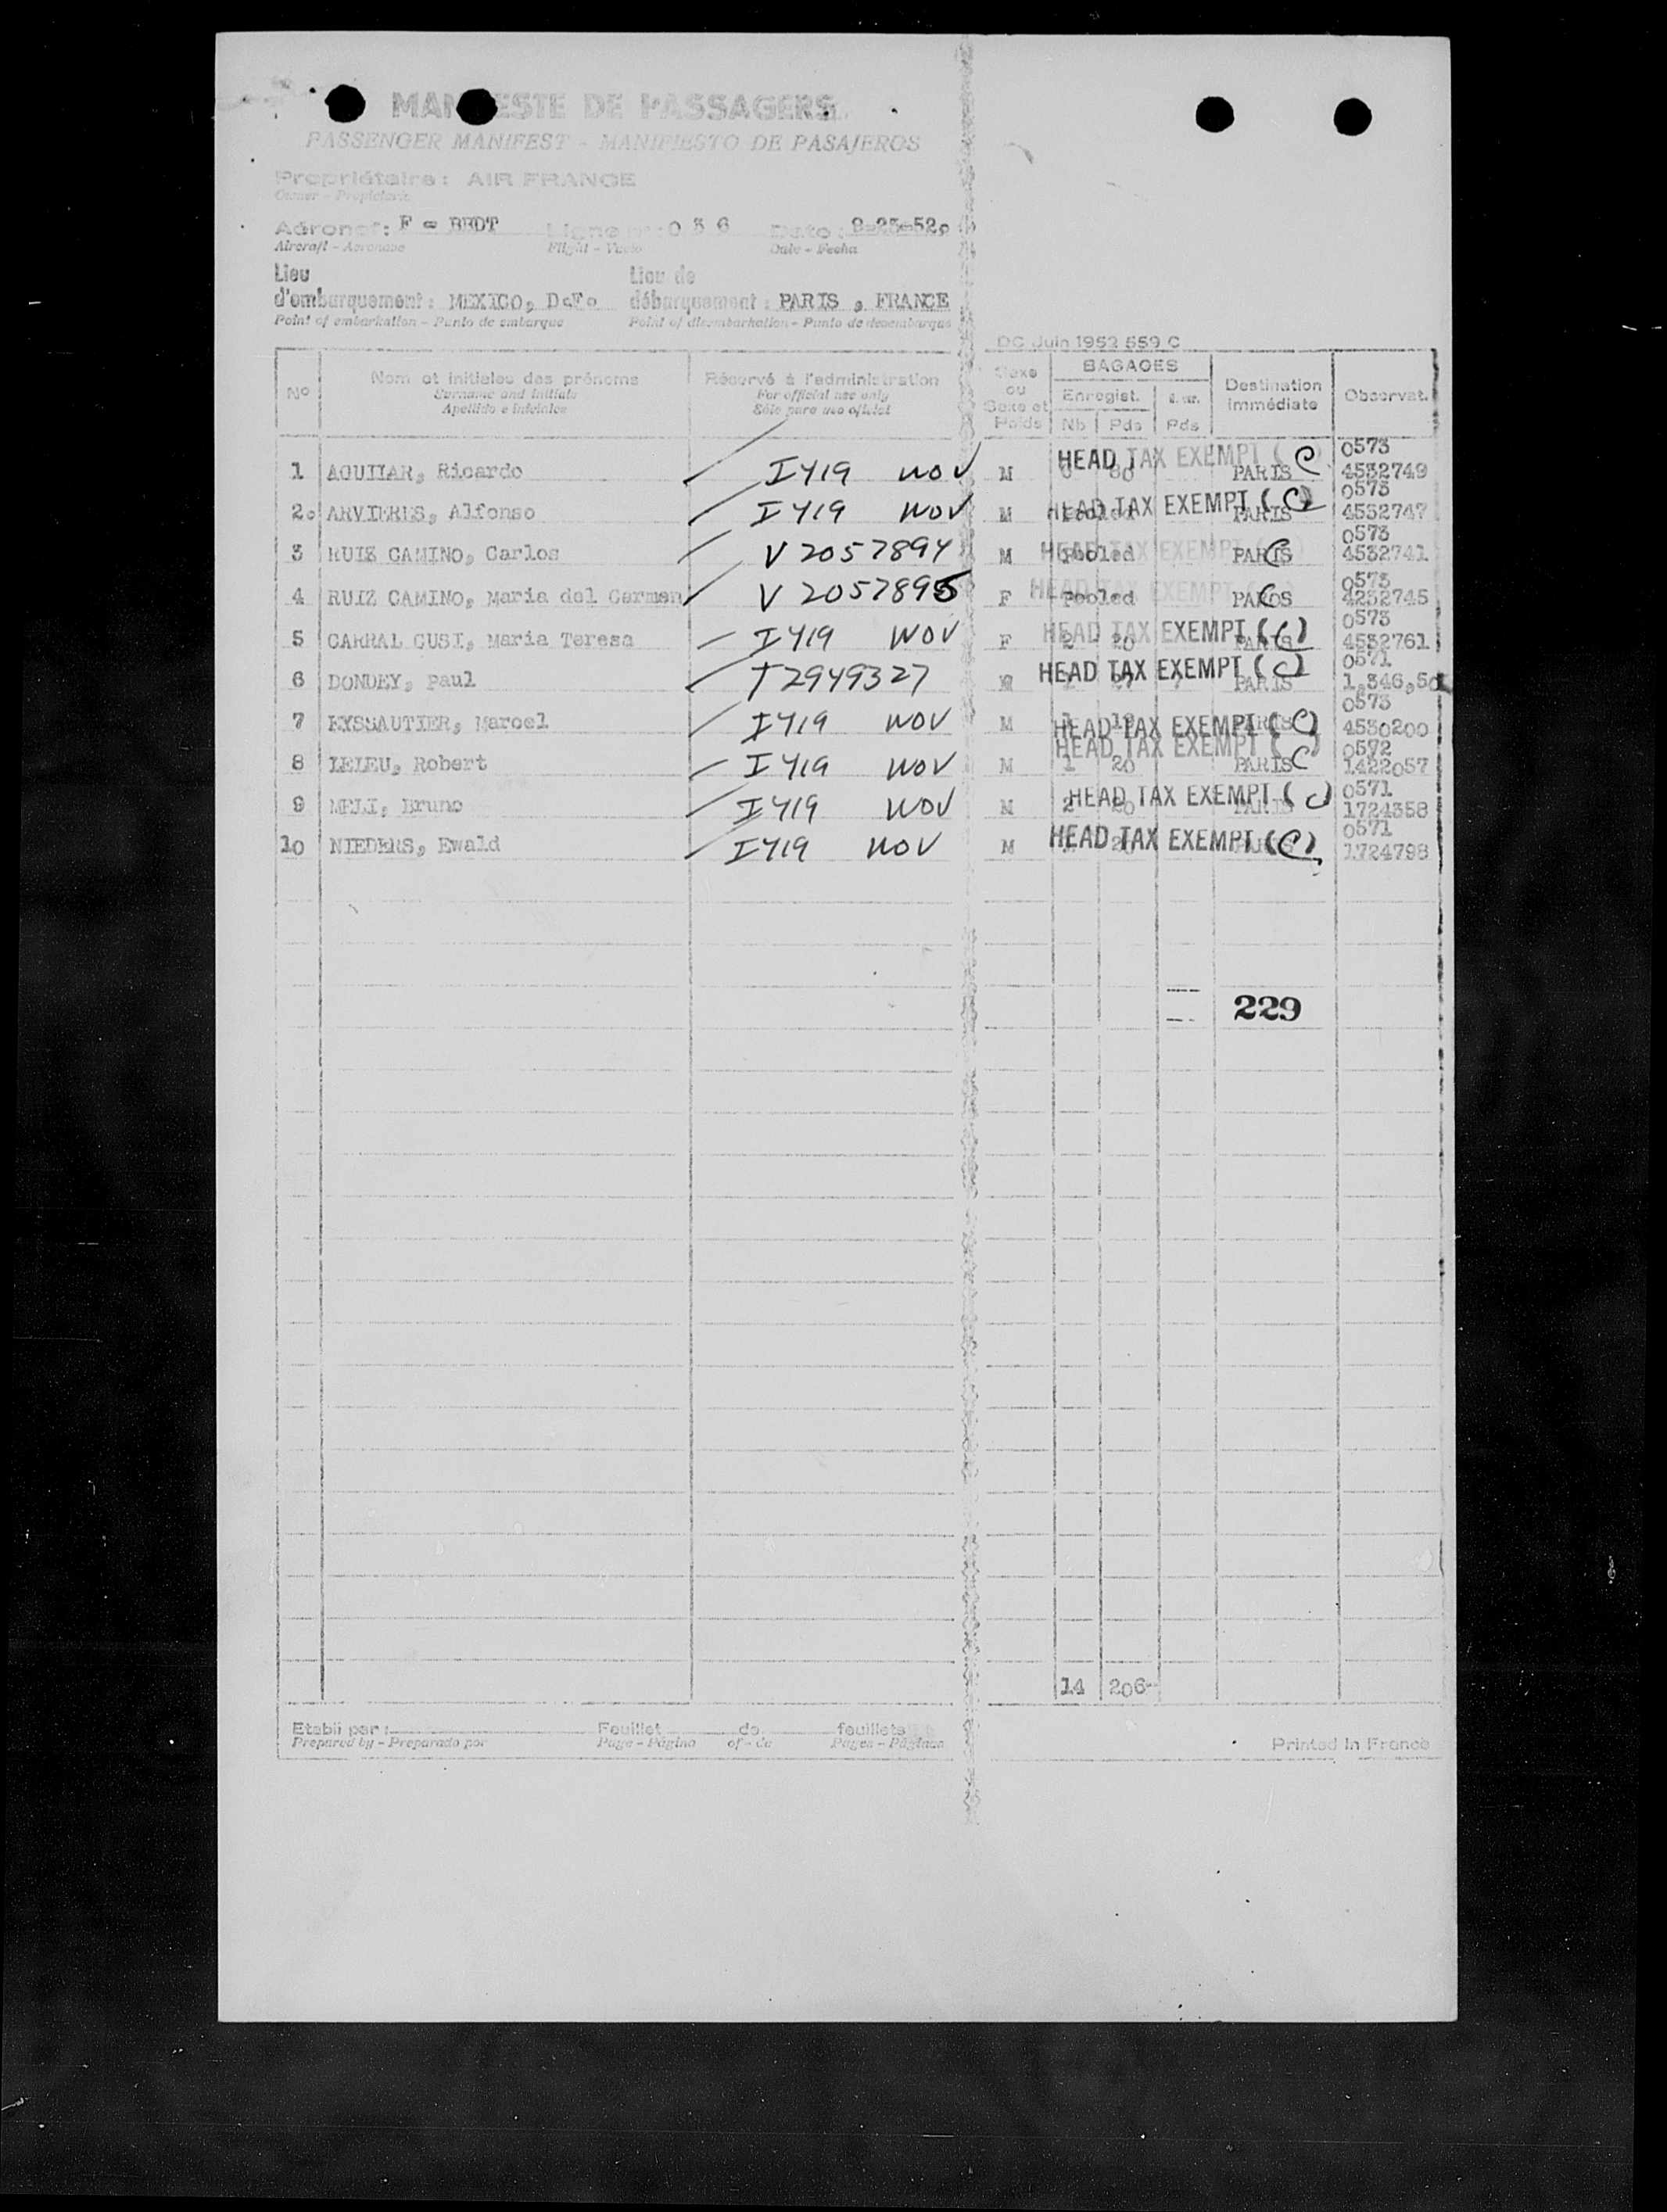 MANIFESTE DE PASSAGERS
PASSENGER MANIFEST - MANIFIESTO DE PASAJEROS
Propriétaire : AIR FRANCE
Owner - Propietario
Aéronef : F = BEDT Ligne nº : 0 3 6 Date : 9-23-52.
Aircraft - Aeronave Flight - Vuelo Date - Fecha
Lieu d'embarquement : MEXICO, D.F. Lieu de débarquement : PARIS , FRANCE
Point of embarkation - Punto de embarque Point of disembarkation - Punto de desembarque
DC Juin 1952 559 C
Nº Nom et initiales des prénoms Réservé à l'administration Sexe ou Sexe et Poids BAGAGES Destination immédiate Observat.
Surname and initials For official use only Enregist.
Apellido e iniciales Sólo para uso oficial Nb Pds Pds
1 AGUILAR, Ricardo I419 NOV M HEAD TAX EXEMPT (C) PARIS 0573 4532749
2. ARVIERES, Alfonso I419 NOV M HEAD TAX EXEMPT (C) PARIS 0573 4532747
3 RUIZ CAMINO, Carlos V 2057894 M Pooled HEAD TAX EXEMPT (C) PARIS 0573 4532741
4 RUIZ CAMINO, Maria del Carmen V 2057895 F Pooled HEAD TAX EXEMPT (C) 0573 4232745
5 CARRAL CUSI, Maria Teresa I419 NOV F 2 20 HEAD TAX EXEMPT (C) PARIS 0573 4532761
6 DONDEY, Paul T2949327 M HEAD TAX EXEMPT (C) PARIS 0571 1,346,50
7 EYSSAUTIER, Marcel I419 NOV M HEAD TAX EXEMPT (C) PARIS 0573 4530200
8 LELEU, Robert I419 NOV M 1 20 HEAD TAX EXEMPT (C) PARIS 0572 1422057
9 MELI, Bruno I419 NOV M 2 HEAD TAX EXEMPT (C) PARIS 0571 1724358
10 NIEDERS, Ewald I419 NOV M HEAD TAX EXEMPT (C) PARIS 0571 1724798
229
14 206
Etabli par : Feuillet de feuillets
Prepared by - Preparado por Page - Página of - de Pages - Páginas
Printed in France